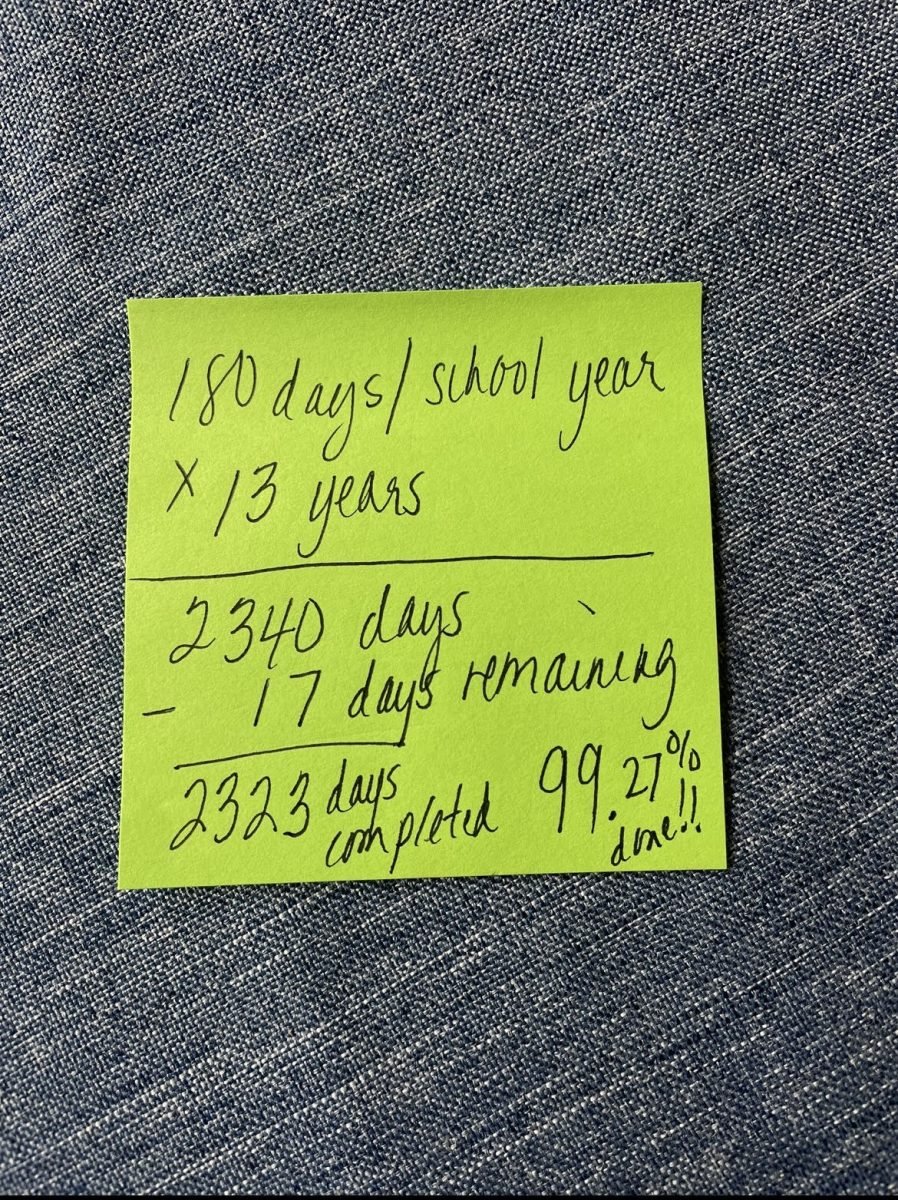 180 days/school year
x 13 years
2340 days
- 17 days remaining
2323 days completed
99.27% done!!